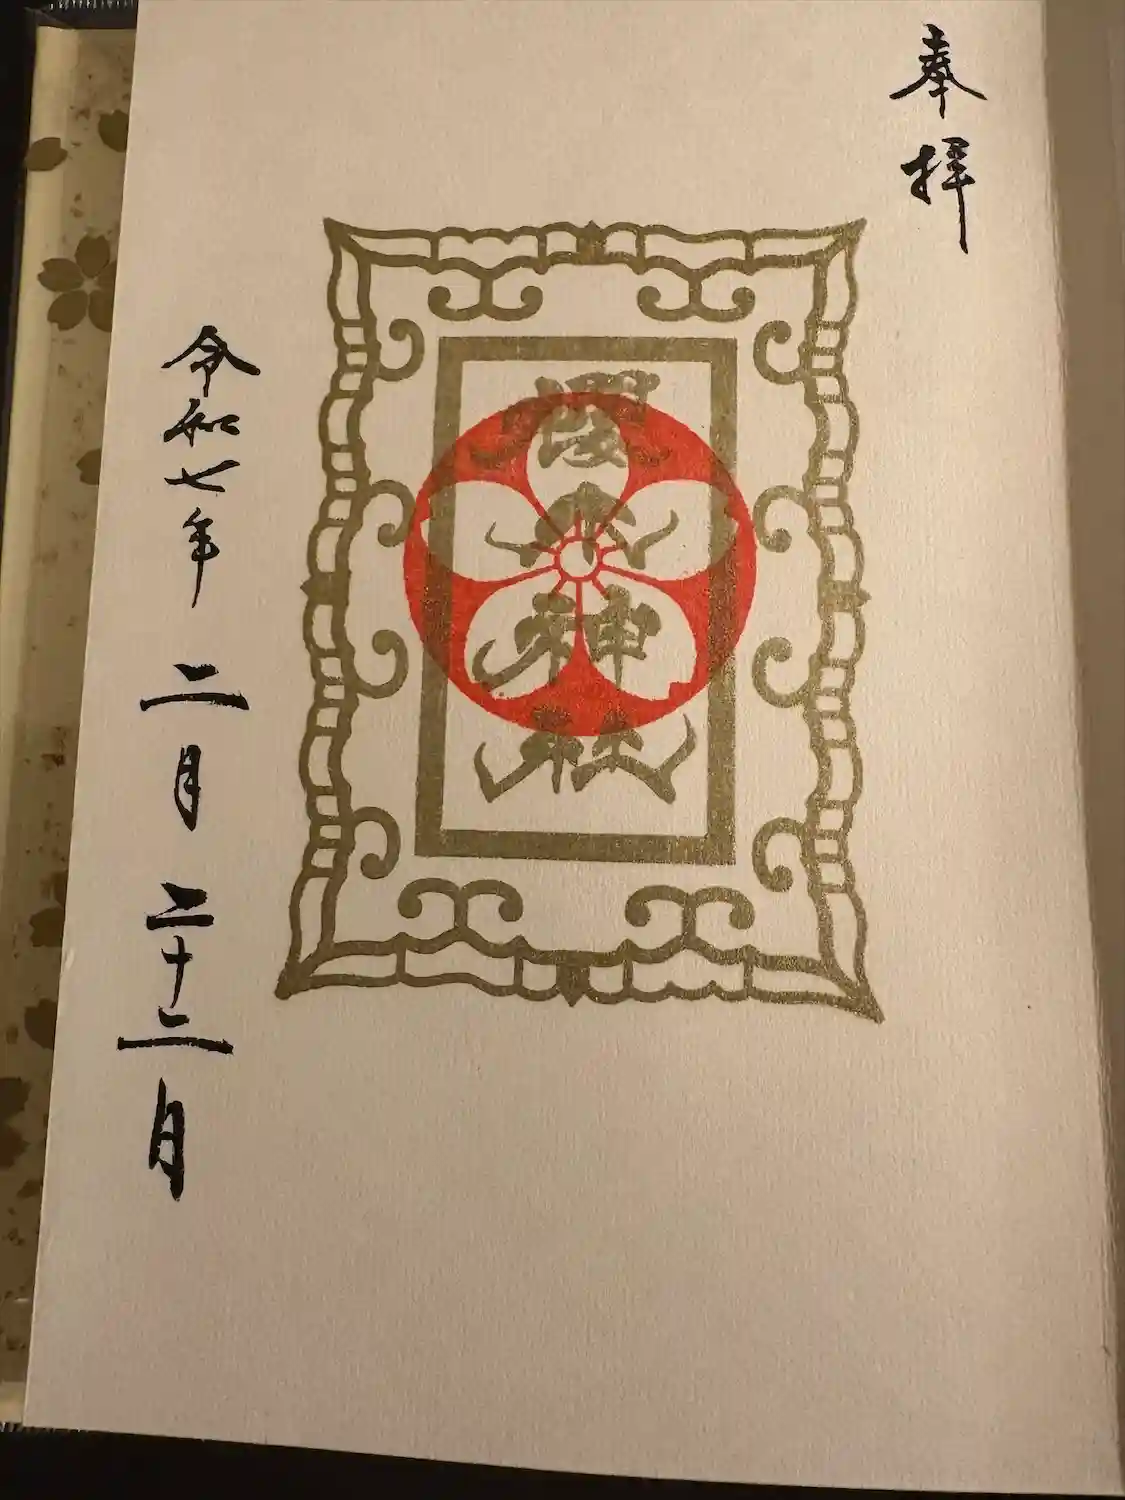 奉拝
櫻木神社
令和七年二月二十二日